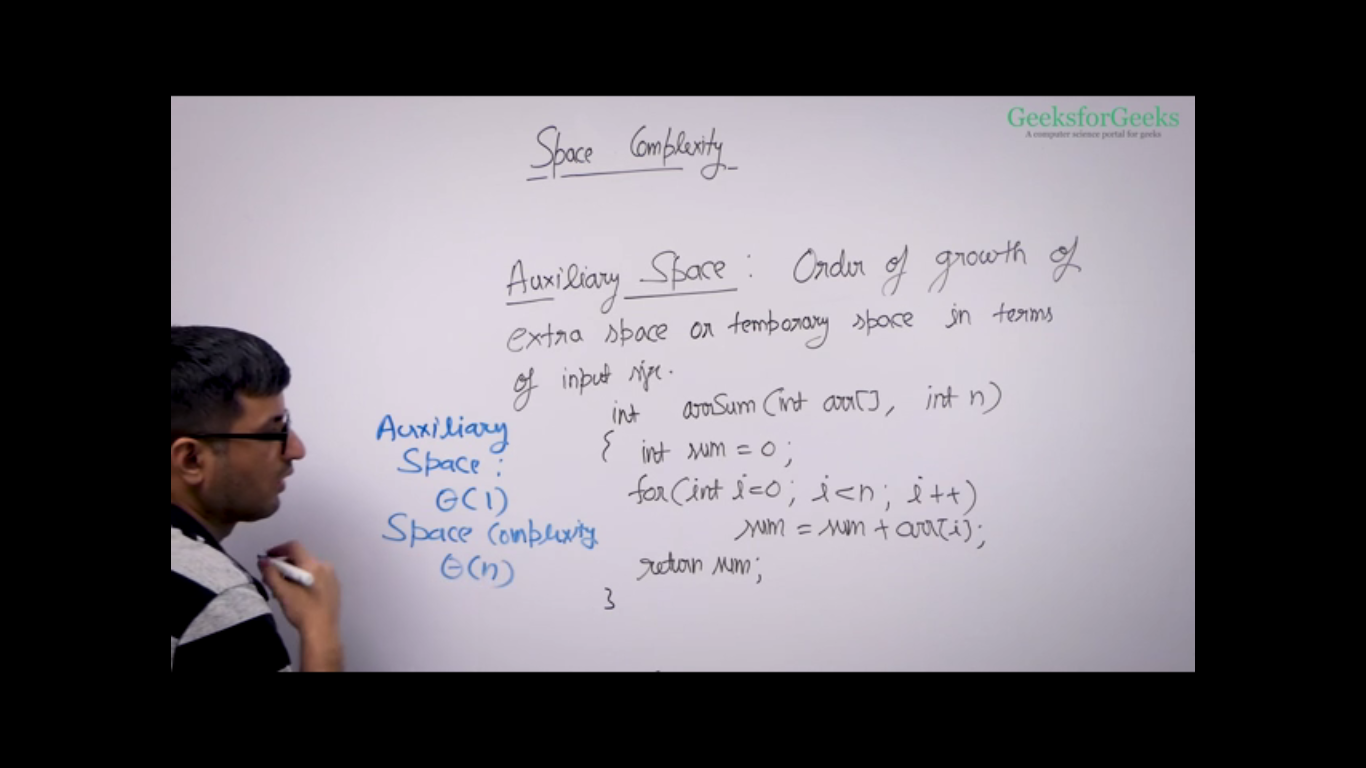 GeeksforGeeks
A computer science portal for geeks
Space Complexity
Auxiliary Space : Order of growth of
extra space or temporary space in terms
of input size.
int arrSum (int arr[], int n)
{ int sum = 0;
for(int i=0; i<n; i++)
sum = sum + arr[i];
return sum;
}
Auxiliary
Space :
Θ(1)
Space Complexity
Θ(n)